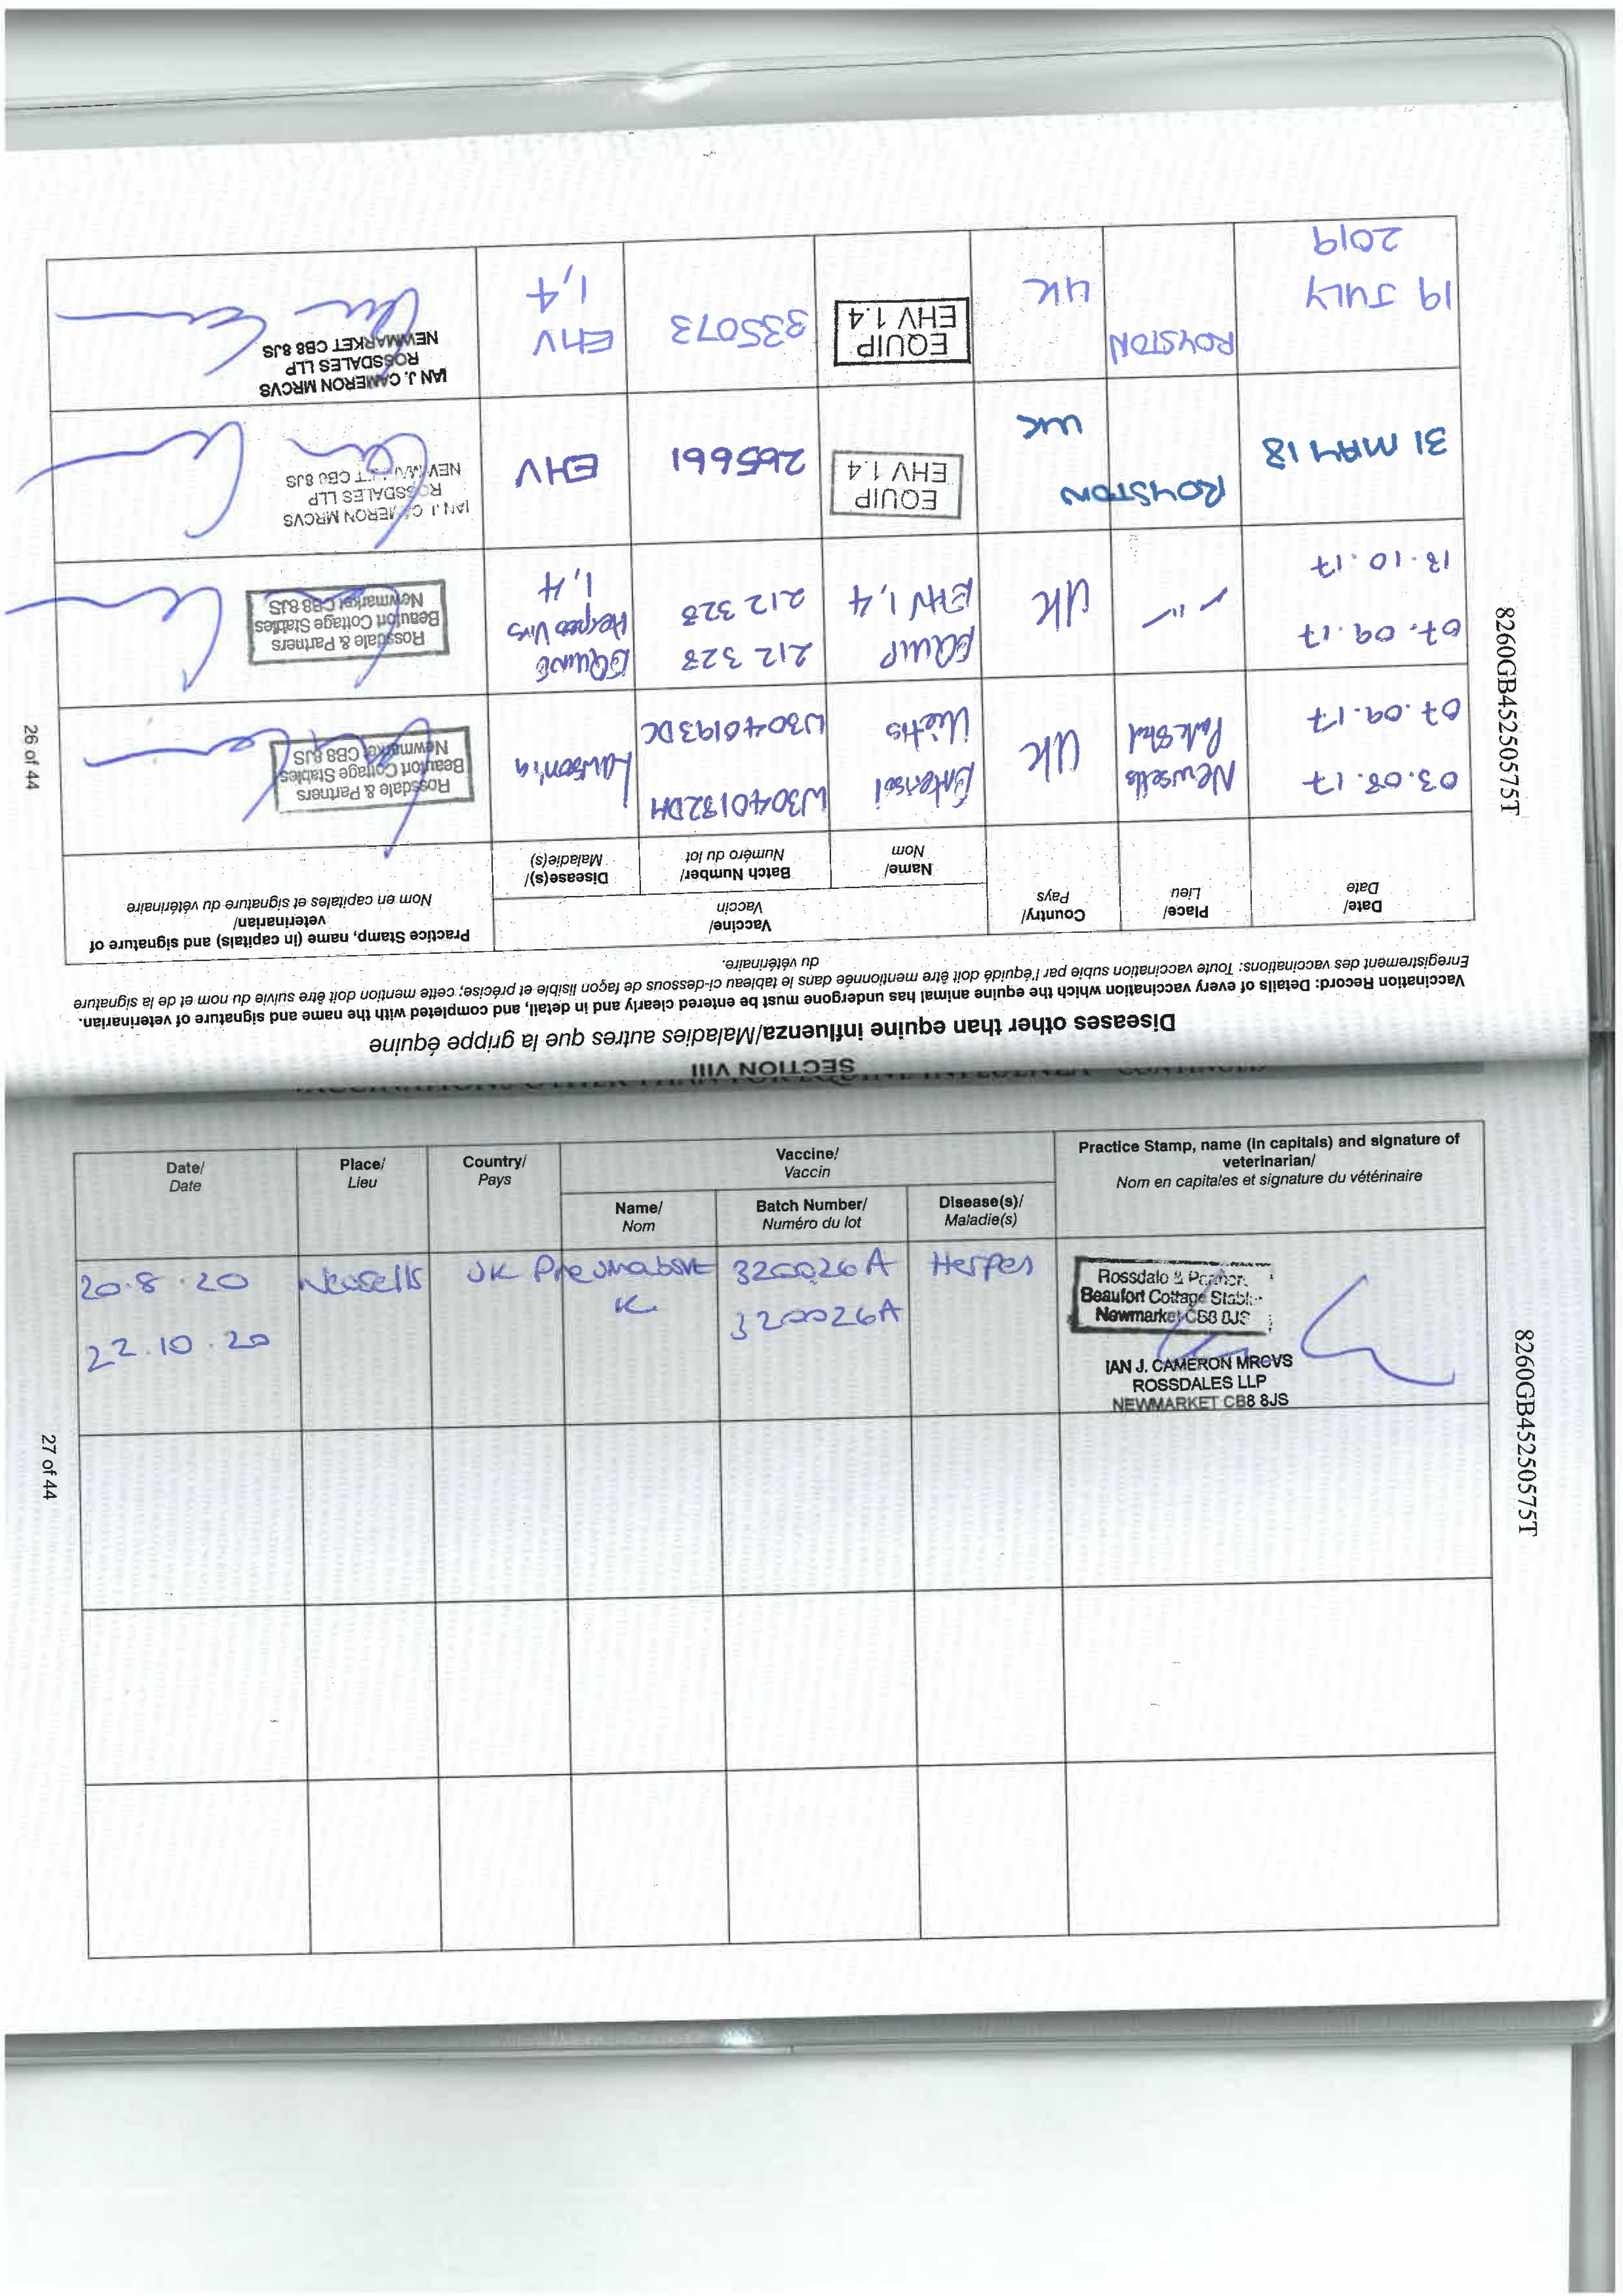 SECTION VIII
Diseases other than equine influenza/Maladies autres que la grippe équine
Vaccination Record: Details of every vaccination which the equine animal has undergone must be entered clearly and in detail, and completed with the name and signature of veterinarian.
Enregistrement des vaccinations: Toute vaccination subie par l'équidé doit être mentionnée dans le tableau ci-dessous de façon lisible et précise; cette mention doit être suivie du nom et de la signature
du vétérinaire.
Date/
Date
Place/
Lieu
Country/
Pays
Vaccine/
Vaccin
Name/
Nom
Batch Number/
Numéro du lot
Disease(s)/
Maladie(s)
Practice Stamp, name (in capitals) and signature of
veterinarian/
Nom en capitales et signature du vétérinaire
03.08.17
07.09.17
Newsells
Park Stud
UK
Enterisol
Ileitis
W3040132DH
W3040193DC
Lawsonia
Rossdale & Partners
Beaufort Cottage Stables
Newmarket CB8 8JS
07.09.17
13.10.17
"
UK
EQUIP
EHV 1,4
212 323
212 323
EQUINE
Herpes Virus
1,4
Rossdale & Partners
Beaufort Cottage Stables
Newmarket CB8 8JS
31 MAY 18
ROYSTON
UK
EQUIP
EHV 1.4
265661
EHV
IAN J. CAMERON MRCVS
ROSSDALES LLP
NEWMARKET CB8 8JS
19 JULY
2019
ROYSTON
UK
EQUIP
EHV 1.4
335073
EHV
1,4
IAN J. CAMERON MRCVS
ROSSDALES LLP
NEWMARKET CB8 8JS
26 of 44
8260GB45250575T
Date/
Date
Place/
Lieu
Country/
Pays
Vaccine/
Vaccin
Name/
Nom
Batch Number/
Numéro du lot
Disease(s)/
Maladie(s)
Practice Stamp, name (in capitals) and signature of
veterinarian/
Nom en capitales et signature du vétérinaire
20.8.20
22.10.20
Newsells
UK
Pneumabort
K
320026A
320026A
Herpes
Rossdale & Partners
Beaufort Cottage Stables
Newmarket CB8 8JS
IAN J. CAMERON MRCVS
ROSSDALES LLP
NEWMARKET CB8 8JS
27 of 44
8260GB45250575T